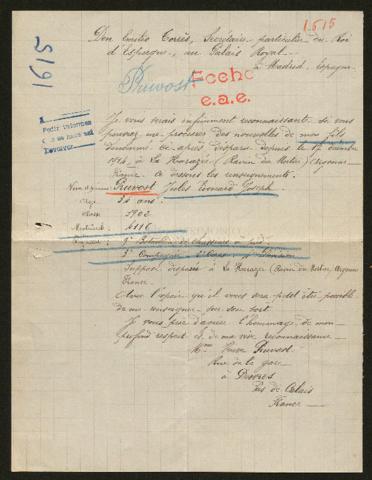 1615
1615
Don Emilio Torrès, Secrétaire particulier du Roi
d'Espagne, au Palais Royal
à Madrid. Espagne.
Pruvost
Fecho
e.a.e.
Je vous serais infiniment reconnaissante si vous
pouviez me procurer des nouvelles de mon fils
dénommé ci-après, disparu depuis le 17
1914, à La Harazée (Ravin du Mortier) Argonne
France ci dessous les renseignements.
Nom et prénoms Pruvost Jules Léonard Joseph
Age ans.
Classe 1902
Matricule 6116
Bataillon de chasseurs à pied
Compagnie
Suppose disparu à La Harazée (Ravin du Mortier, Argonne
France.
Avec l'espoir qu'il vous sera peut être possible
de me renseigner sur son sort
Je vous prie d'agréer l'hommage de mon
profond respect et de ma vive reconnaissance
Mme Pruvost
Rue de la gare
à Desvres
Pas de Calais
France